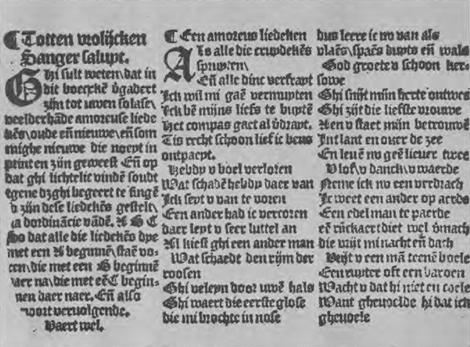 ¶ Totten vrolijcken
Sanger saluyt.
Ghi sult weten dat in
dit boecxkē vgadert
zijn tot uwen solase
veelderhāde amoreuse liede
kēs, oude eñ nieuwe, eñ som
mighe nieuwe die noeyt in
printen en zijn geweest Eñ op
dat ghi lichtelic vindē soudt
tgene dz ghi begeert te singē
so zijn dese liedekēs gestelt
a b c
So dat alle die liedekēs dye
met een A beginnē staē vo-
ren, die met een B beginnē
daer na, die met eē C begin-
nen daer naer. Eñ also
voort vervolgende.
Vaert wel.
¶ Een amoreus liedeken
Als alle die cruydekēs
spruyten
Eñ alle dinc verfrayt
Ick wil mi gaē vermuyten
Ick bē mijns liefs te buytē
Het compas gaet al v̄drayt.
Tis recht schoon lief ic beus
ontpaeyt.
Hebdy v boel verloren
Wat schadē hebdy daer van
Ick sept v van te voren
Een ander had ic vercoren
daer leyt v seer luttel an
Ni kiest ghi een ander man
Wat schaedt den rijm der
roosen
Ghi veleyn door uwē hals
Ghi waert die eerste glose
die mi brochte in nose
dus leere ic wo van als
vlaēs spaēs duyts eñ wals
God groete v schoon ker-
souwe
Ghi snijt mijn herte ontwee
Ghi zijt die liefste vrouwe
Nen v staet mijn betrouwē
Int lant en over de zee
En levē wo geē liever twee
V lof v danck v waerde
Neme ick wo een verdrach
Ic weet een ander op aerde
Een edel man te paerde
eñ ruckaert diet wel v̄mach
die vrijt mi nacht en dach
Vrijt v een mā teenē boele
Een ruyter oft een baroen
Wacht v dat hi niet en coele
Want ghevoelde hi dat ick
ghevoele